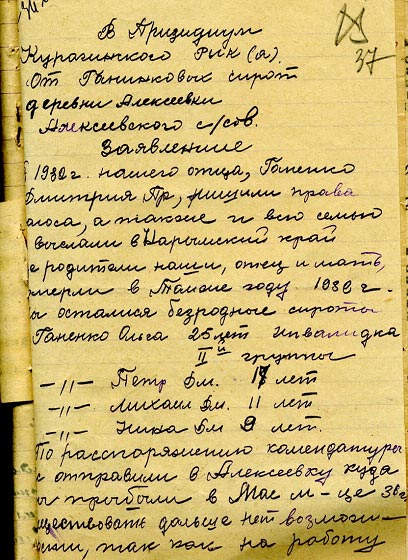 37
В Призидиум
Курагинского Рик (а).
От Ганинковых сирот
деревни Алексеевки
Алексеевского с/сов.
Заявление
1932 г. нашего отца, Ганенко
Дмитрия Пр, решили права
лоса, а также и всю семью
выслали в Нарымский край
е родители наши, отец и мать,
мерли в том же году 1932 г.
ы остались безродные сироты
Ганенко Ольга 25 лет инвалидка
II й группы
—„— Петр Дм. 17 лет
—„— Михаил Дм. 11 лет
—„— Нина Дм 9 лет.
По распоряжению комендатуры
с отправили в Алексеевку куда
ы прибыли в Мае м-це 36 г.
ществовать дальше нет возможн-
так как на работу